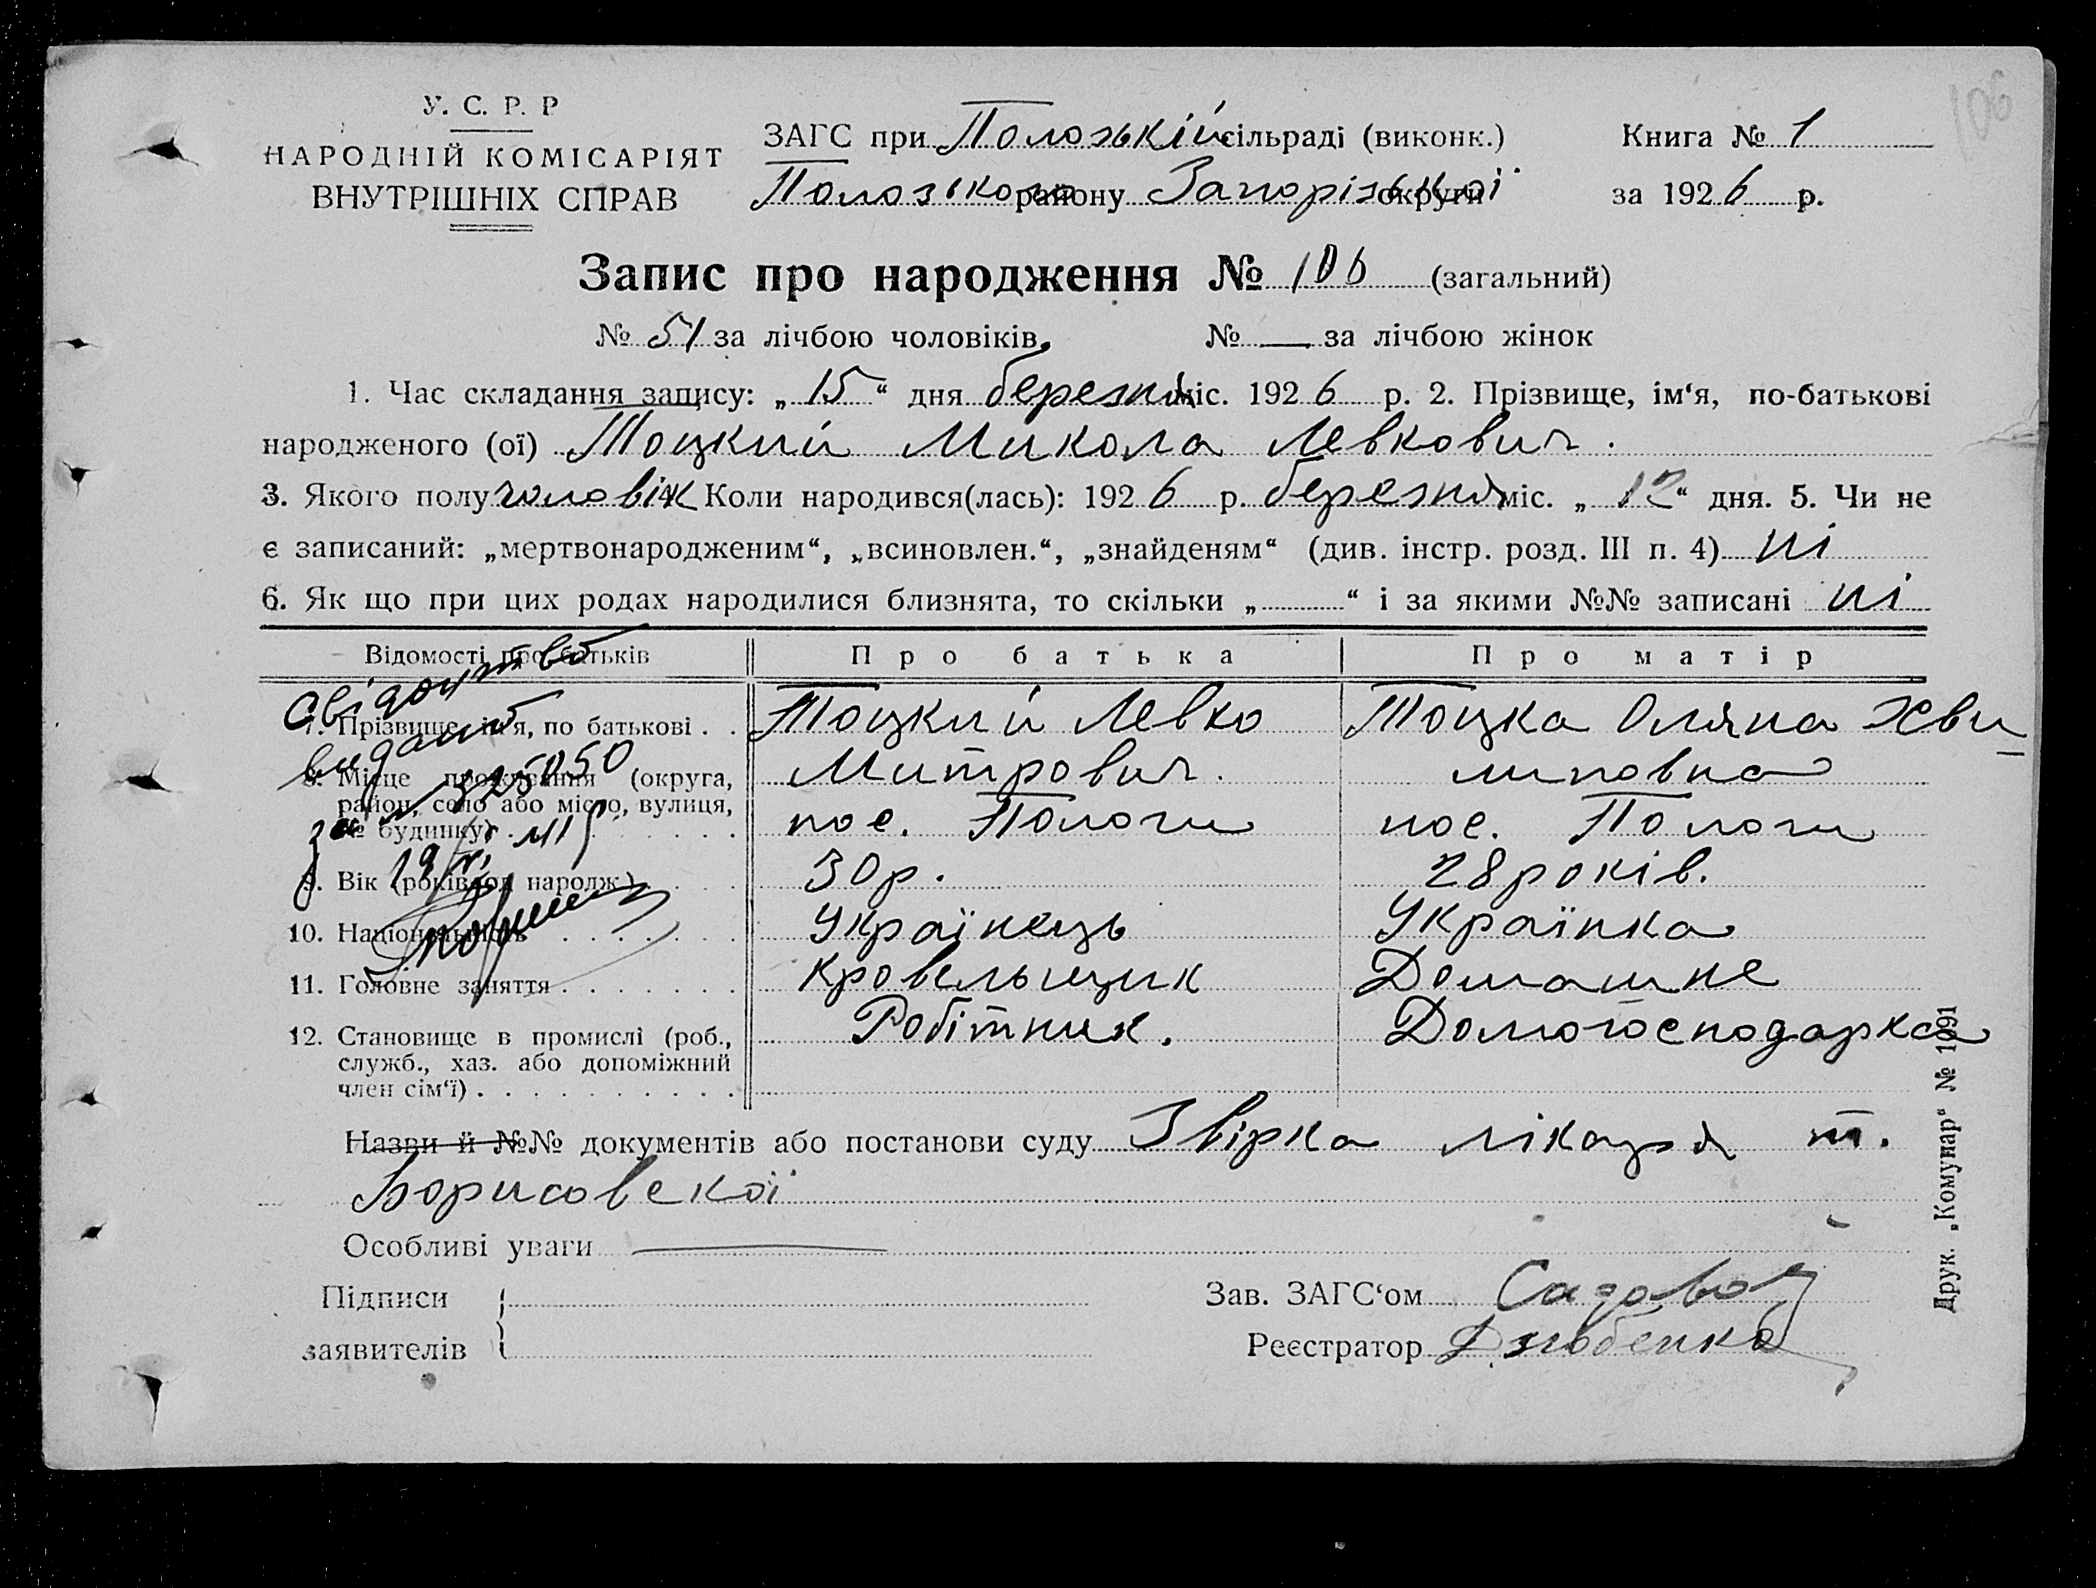 106
У. С. Р. Р
НАРОДНІЙ КОМІСАРІЯТ
ВНУТРІШНІХ СПРАВ
ЗАГС при Пологській сільраді (виконк.)
Пологського району Запорізької округи
Книга № 1
за 1926 р.
Запис про народження № 106 (загальний)
№ 51 за лічбою чоловіків. № — за лічбою жінок
1. Час складання запису: „15“ дня березня міс. 1926 р. 2. Прізвище, ім‘я, по-батькові
народженого (ої) Тоцкий Микола Левкович.
3. Якого полу чоловік 4. Коли народився(лась): 1926 р. березня міс. „12“ дня. 5. Чи не
є записаний: „мертвонародженим“, „всиновлен.“, „знайденям“ (див. інстр. розд. III п. 4) ні
6. Як що при цих родах народилися близнята, то скільки „ “ і за якими №№ записані ні
Відомості про батьків Про батька Про матір
7. Прізвище, ім‘я, по батькові . . Тоцкий Левко Митрович. Тоцка Оляна Хвилиповна
8. Місце проживання (округа,
район, село або місто, вулиця,
№ будинку) пос. Пологи пос. Пологи
9. Вік (років од народж.) 30 р. 28 років.
10. Національність Українець Українка
11. Головне заняття Кровельщик Домашнє
12. Становище в промислі (роб.,
служб., хаз. або допоміжний
член сім‘ї) Робітник. Домогосподарка
свідоцтво
видано
за № 325050
19
Назви й №№ документів або постанови суду Звірка лікаря т.
Борисовської
Особливі уваги —
Підписи
заявителів
Зав. ЗАГС‘ом Садовой
Реєстратор Дзюбенко
Друк. „Комунар“ № 1091